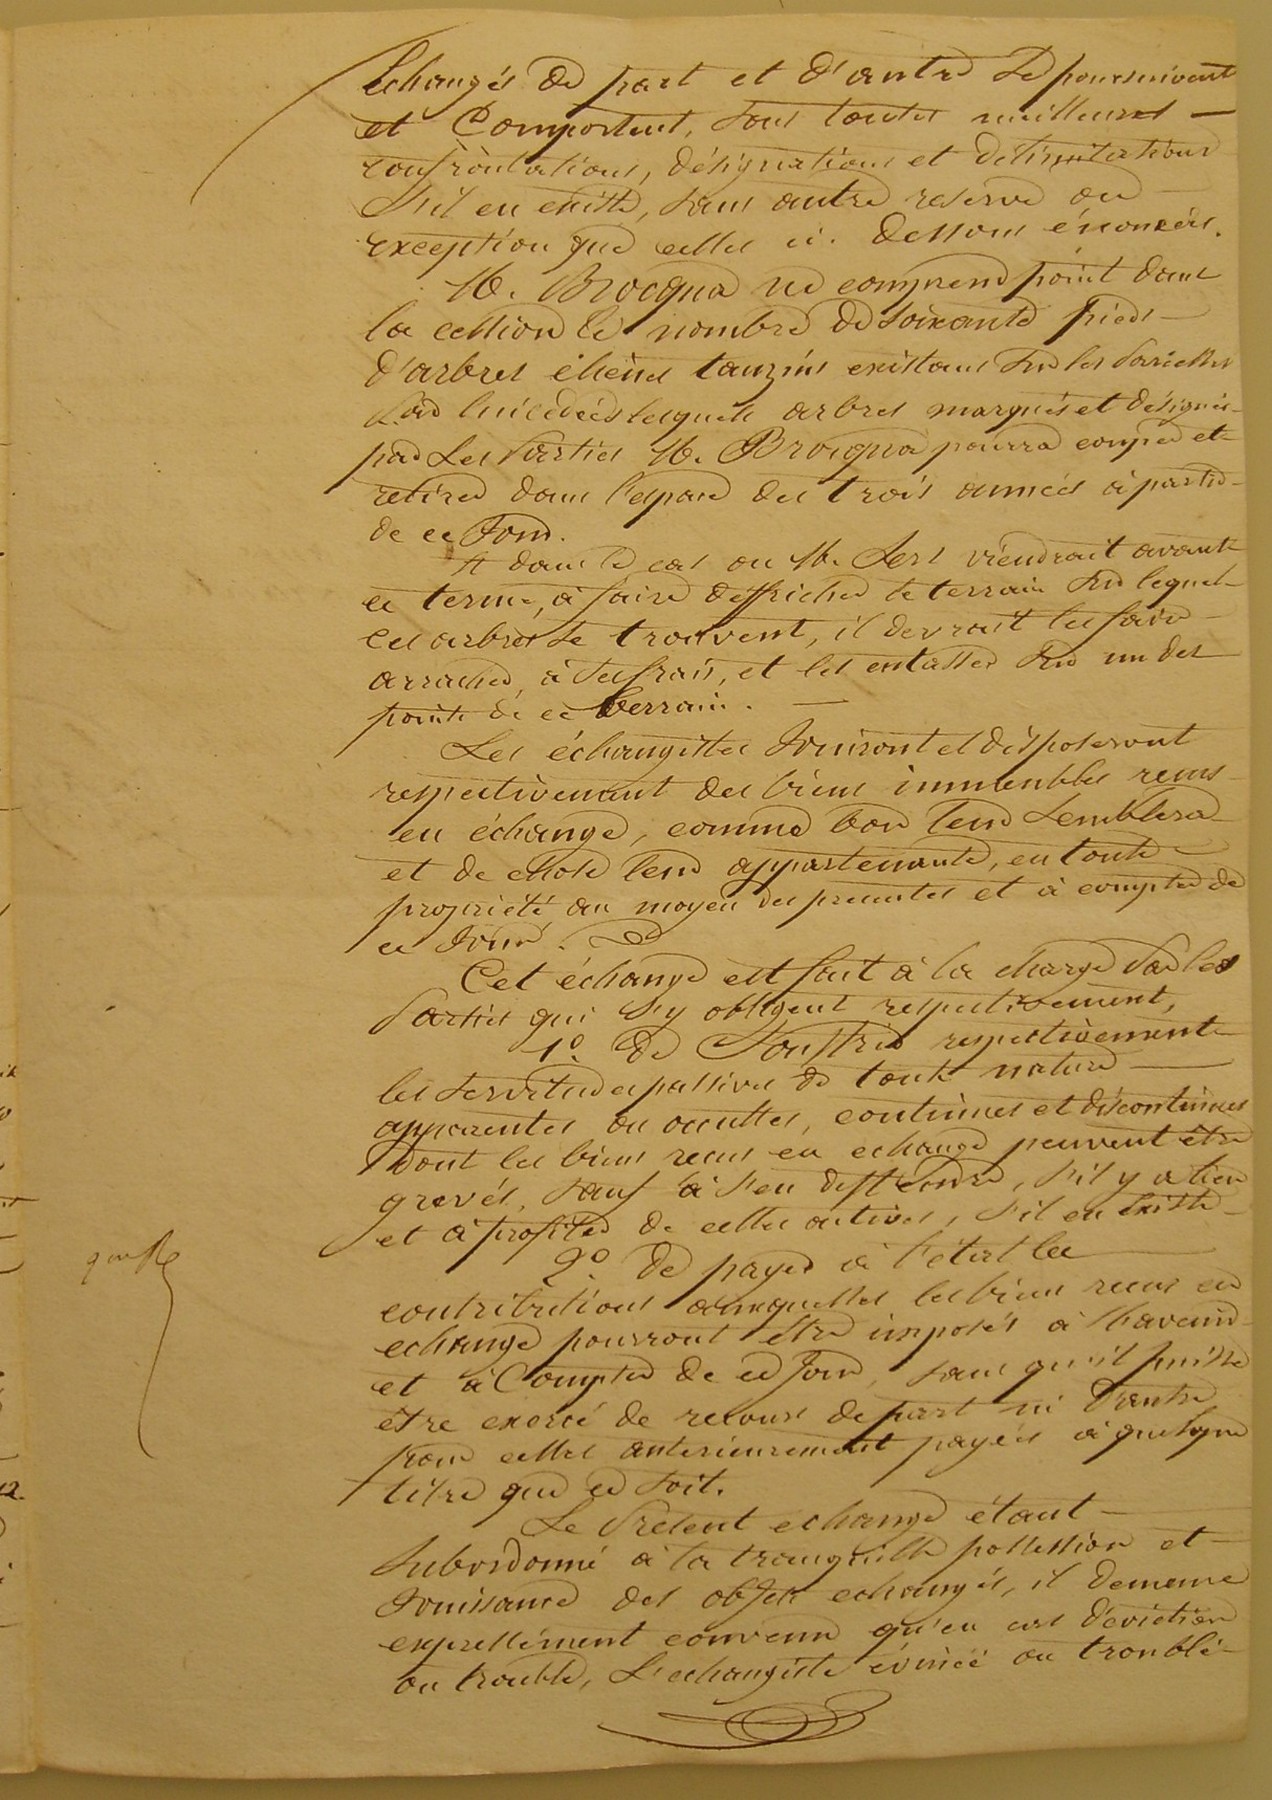 échangés de part et d'autre se poursuivent
et Comportent, sous toutes meilleures
confrontations, désignations et délimitations
S'il en existe, sans autre reserve ou
exception que celles ci. dessous énoncées.
M. Brocqua ne comprend point dans
la cession le nombre de soixante pieds
d'arbres chênes tauzins existans sur les Parcelles
Par lui cédées lesquels arbres marqués et désignés
par Les Parties M. Brocqua pourra couper et
retirer dans l'espace des trois années à partir
de ce Jour.
Et dans le cas ou M. Sers viendrait avant
ce terme, à faire deffricher le terrain sur lequel
ces arbres se trouvent, il devrait les faire
arracher, à ses frais, et les entasser sur un des
points de ce terrain.
Les échangistes Jouiront et disposeront
respectivement des biens immeubles reçus
en échange, comme bon leur Semblera
et de chose leur appartenante, en toute
propriété, au moyen des presentes et à compter de
ce Jour.
Cet échange est fait à la charge Par les
Parties qui s'y obligent respectivement,
1o. De Souffrir respectivement
les servitudes passives de toute nature
apparentes ou occultes, continues et discontinues
dont les biens reçus en echange peuvent être
grevés, sauf à s'en deffendre, s'il y a lieu
et à profiter de celles actives, s'il en Existe
2o. De payer à l'état les
contributions auxquelles les biens reçus en
echange pourront être imposés à l'avenir
et à Compter de ce Jour, sans qu'il puisse
être exercé de recours de part ni d'autre
pour celles anterieurement payées à quelque
titre que ce soit.
Le Présent echange étant
Subordonné à la tranquille possession et
Jouissance des objets echangés, il demeure
expressément convenu qu'en cas d'éviction
ou trouble, L'echangiste évincé ou troublé